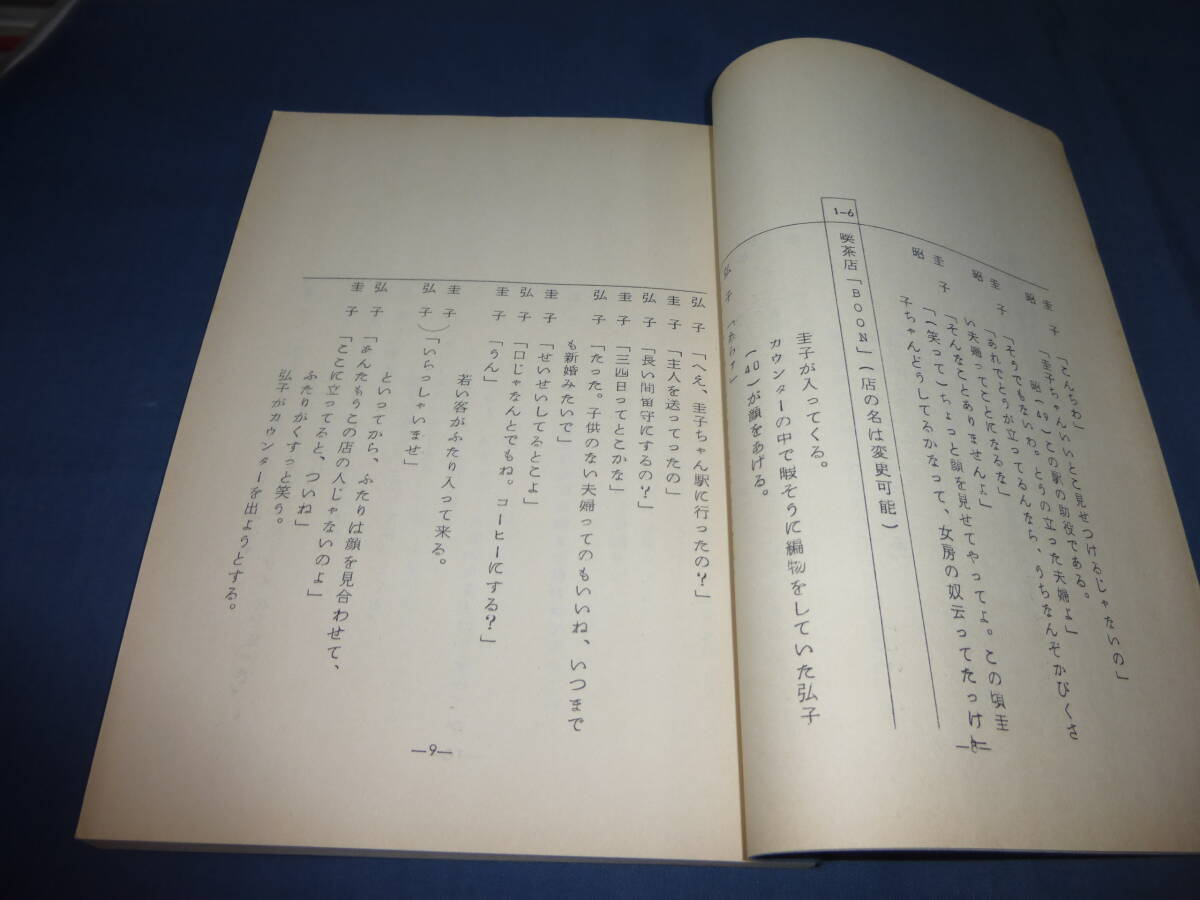 圭子「こんちわ」
昭「圭子ちゃんいいとこ見せつけるじゃないの」
昭(49)この駅の助役である。
圭子「そうでもないわ。とうの立った夫婦よ」
昭「あれでとうが立ってるんなら、うちなんぞかびくさ
い夫婦ってことになるな」
圭子「そんなことありませんよ」
昭「(笑って)ちょっと顔を見せてやってよ。この頃圭
子ちゃんどうしてるかなって、女房の奴云ってたっけ」
1-6
喫茶店「BOON」(店の名は変更可能)
圭子が入ってくる。
カウンターの中で暇そうに編物をしていた弘子
(40)が顔をあげる。
弘子
—8—
弘子「へえ、圭子ちゃん駅に行ったの?」
圭子「主人を送ってったの」
弘子「長い間留守にするの?」
圭子「三四日ってとこかな」
弘子「たった。子供のない夫婦ってのもいいね、いつまで
も新婚みたいで」
圭子「せいせいしてるとこよ」
弘子「口じゃなんとでもね。コーヒーにする?」
圭子「うん」
若い客がふたり入って来る。
圭子
弘子)「いらっしゃいませ」
といってから、ふたりは顔を見合わせて、
弘子「あんたもうこの店の人じゃないのよ」
圭子「ここに立ってると、ついね」
ふたりがくすっと笑う。
弘子がカウンターを出ようとする。
—9—